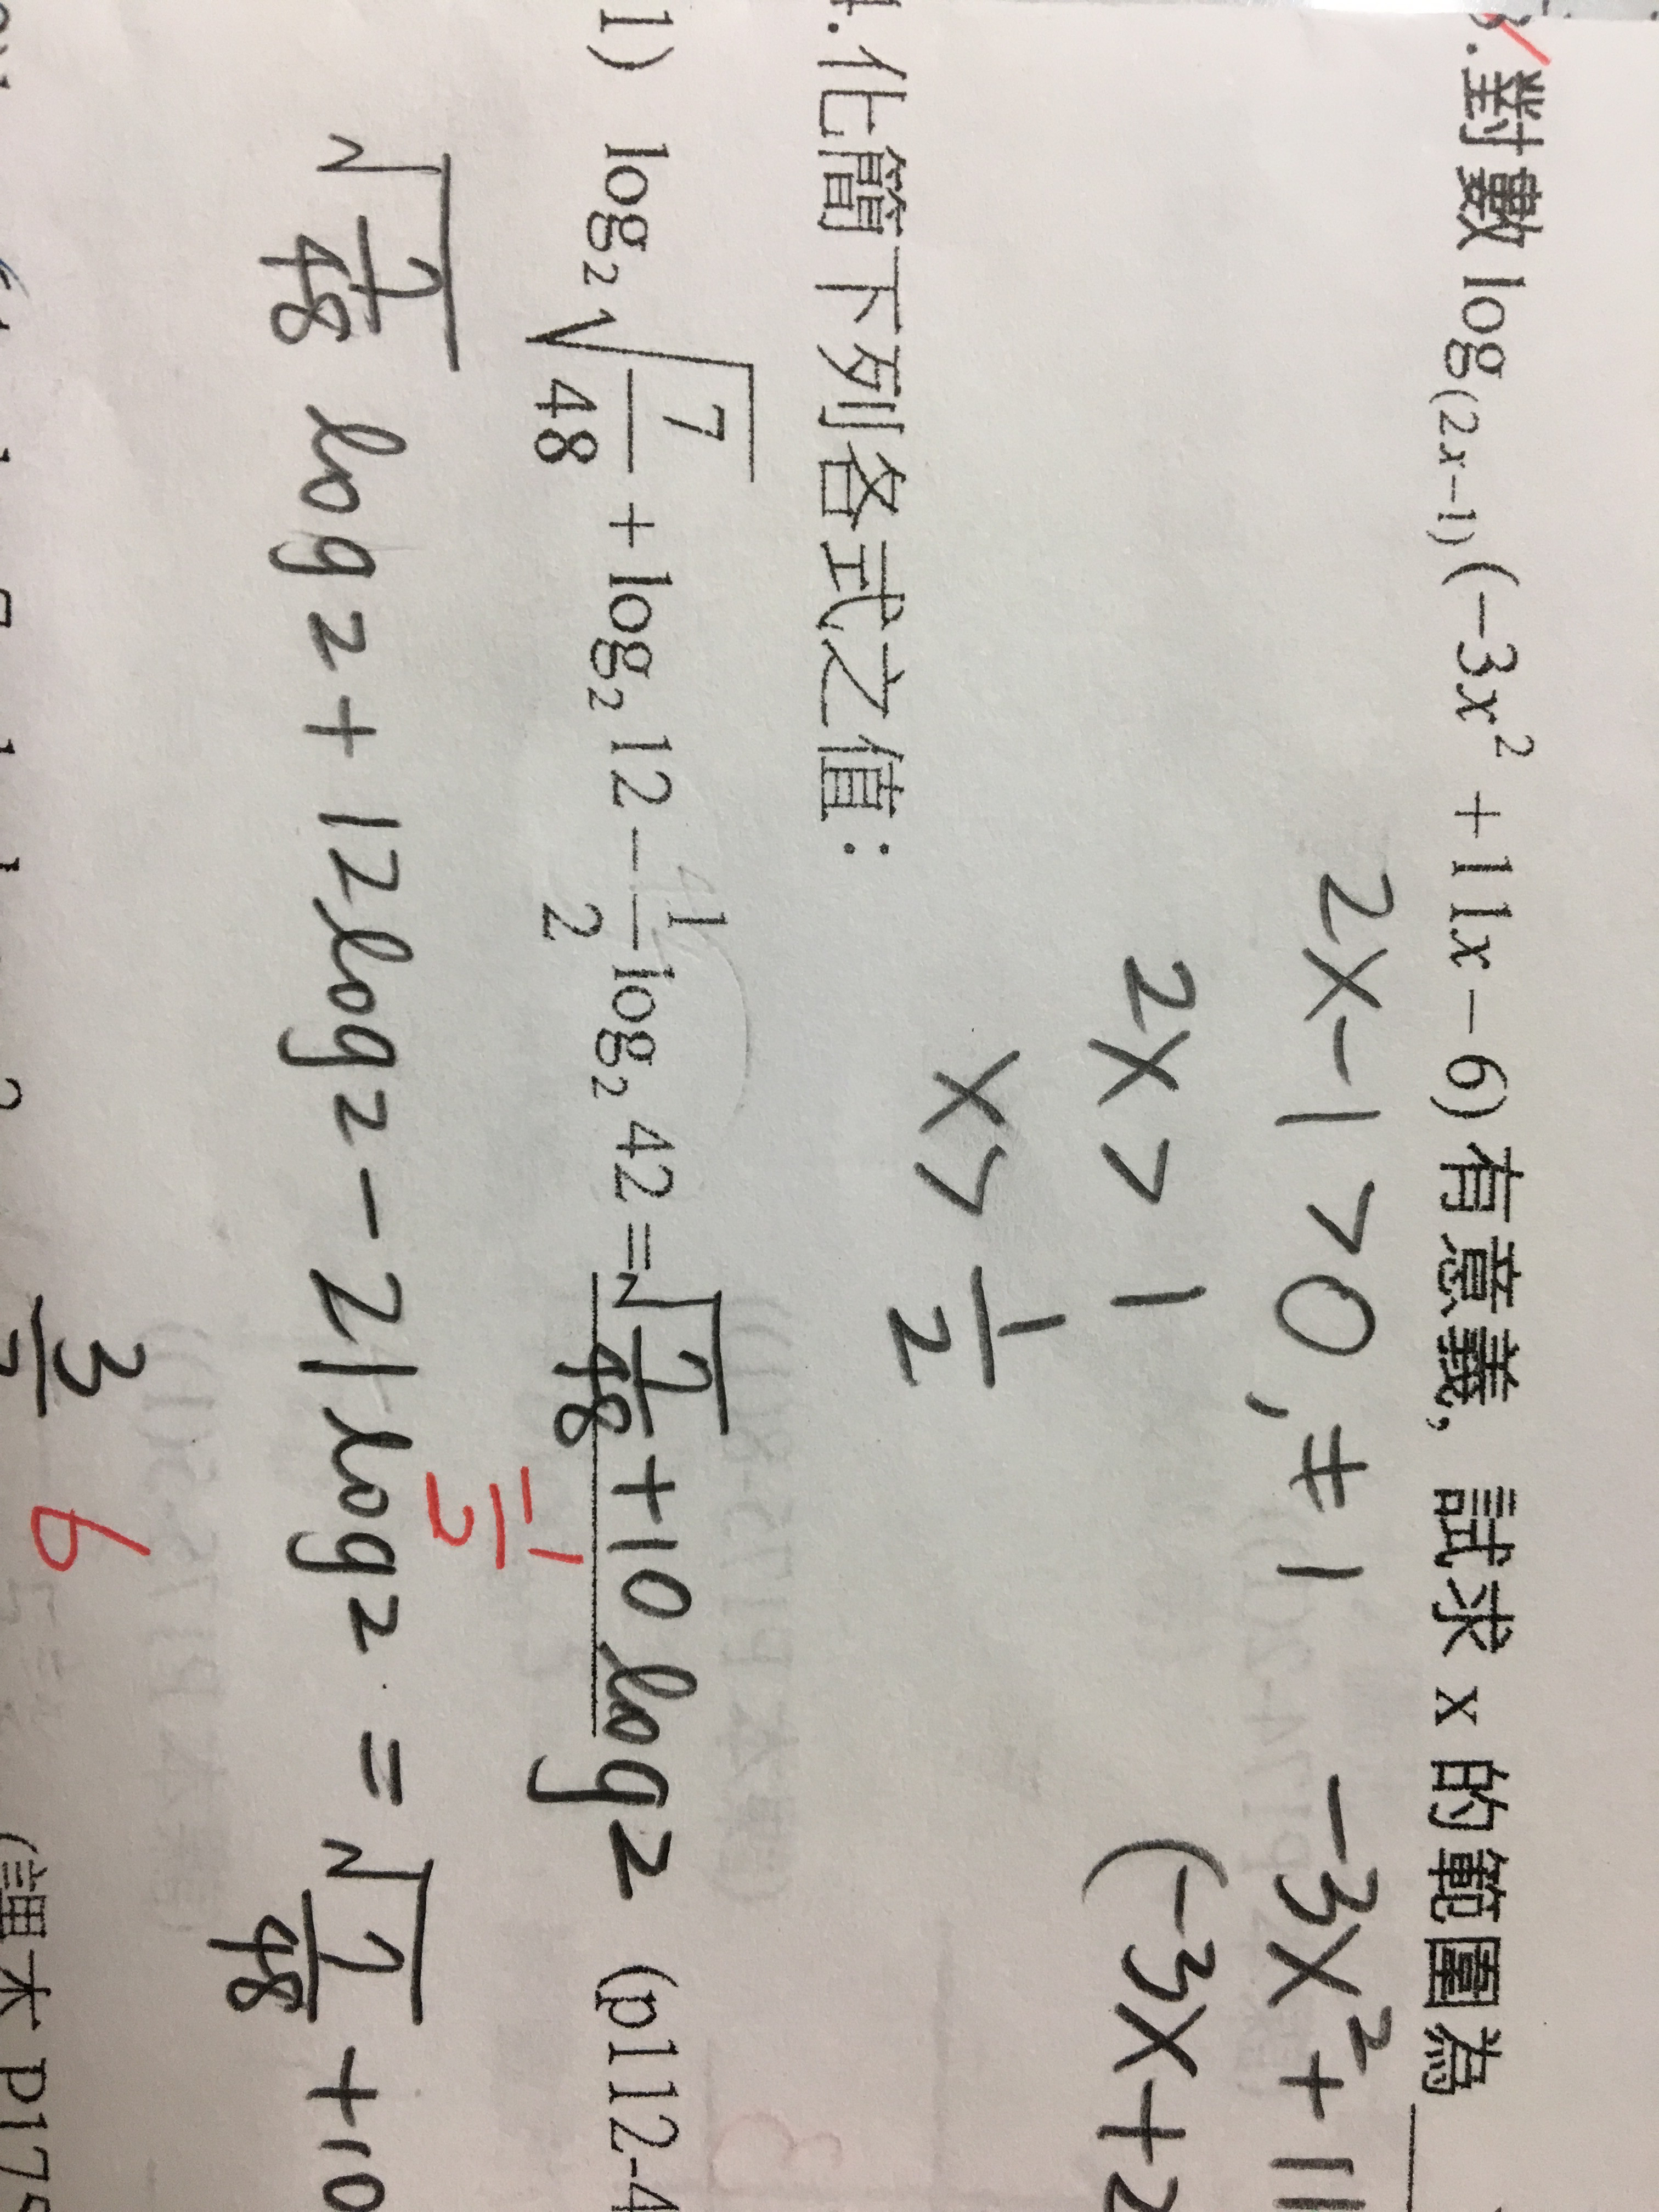 3.對數 log₍₂ₓ₋₁₎(-3x² + 11x - 6)有意義, 試求 x 的範圍為
2x-1>0, ≠1 -3x²+11
2x>1 (-3x+2
x>1/2
4.化簡下列各式之值:
1) log₂√(7/48) + log₂12 - 1/2 log₂42 = √(7/48)+10log2 (p112-4
-1/2
√(7/48) log2+12log2-21log2 = √(7/48)+10
3
6
(課本 P175